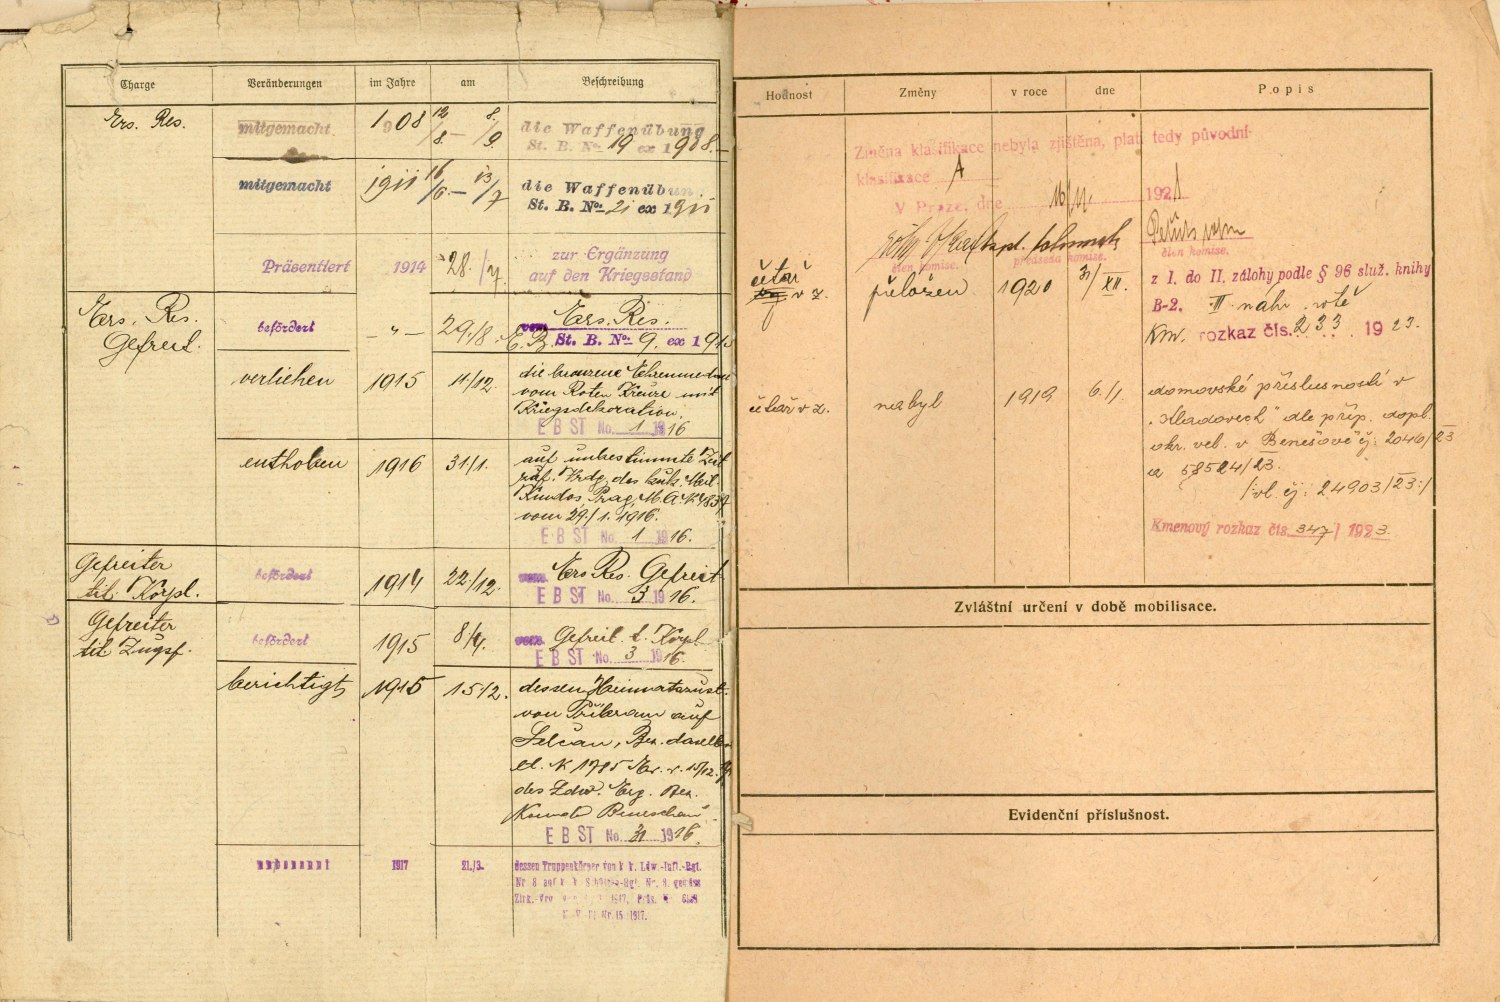 Charge
Veränderungen
im Jahre
am
Beschreibung
Ers. Res.
mitgemacht
1908
12/8 – 8./9.
die Waffenübung
St. B. No. 19 ex 1908.
mitgemacht
1911
16/6 – 13/7
die Waffenübun
St. B. No. 21 ex 1911
Präsentiert
1914
28./7.
zur Ergänzung
auf den Kriegsstand
Ers. Res.
Gefreit.
befördert
„ –
29./8.
vom Ers. Res.
E. B. St. B. No. 9. ex 1915
verliehen
1915
11/12.
die bronzene Ehrenmed
vom Roten Kreuze mit
Kriegsdekoration,
E B ST No. 1 1916
enthoben
1916
31/1.
auf unbestimmte Zeit
des kuk. Mil.
Kmdos Prag, M. A. N
vom 29./1. 1916.
E B ST No. 1 1916.
Gefreiter
tit. Korpl.
befördert
1914
22./12.
vom Ers. Res. Gefreit
E B ST No. 3 1916.
Gefreiter
tit. Zugsf.
befördert
1915
8/4.
vom Gefreit. t. Korpl
E B ST No. 3 1916.
berichtigt
1915
15/2.
dessen Heimatszust.
von Přibram auf
Selčan, Bez. daselbs
N 1785
des Ldw. Erg. Bez.
Komdo Beneschau
E B ST No. 31 1916.
1917
21./3.
dessen Truppenkörper von k. k. Ldw.-Inft.-Rgt.
Nr 8 auf k. k. Schützen-Rgt. Nr. 8. gemäss
1917, Präs. Nr.
Nr. 15 1917.
Hodnost
Změny
v roce
dne
Popis
Změna klasifikace nebyla zjištěna, platí tedy původní
klasifikace A
V Praze, dne 1921
člen komise.
předseda komise.
člen komise.
četař
v z.
přeložen
1920
31/XII.
z I. do II. zálohy podle § 96 služ. knihy
B-2. III náhr. rotě
Km. rozkaz čís. 233 1923.
četař v z.
nabyl
1919
6./1.
domovské příslusností v
„Hladovech" dle příp. dopl.
okr. vel. v Benešově čj: 2046/23
a 58524/23.
/:vl. čj: 24903/23:/
Kmenový rozkaz čís. 347/1923.
Zvláštní určení v době mobilisace.
Evidenční příslušnost.